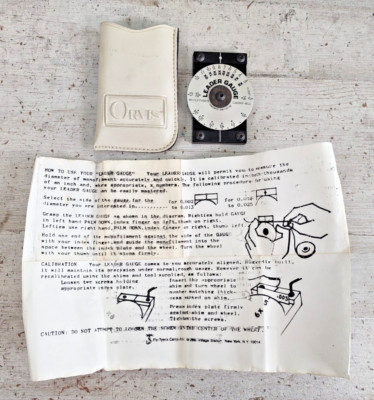 ORVIS
LEADER GAUGE
HOW TO USE YOUR "LEADER GAUGE" Your LEADER GAUGE will permit you to measure the
diameter of monofilament accurately and quickly. It is calibrated in thousandths
of an inch and, more appropriate, x numbers. The following procedure for using
your LEADER GAUGE can be easily mastered.
Select the side of the gauge for the for 0.002 for 0.010
diameter you are interested in. to 0.012 to 0.020
Grasp the LEADER GAUGE as shown in the diagram. Righties hold GAUGE
in left hand PALM DOWN, index finger on left, thumb on right.
Lefties use right hand, PALM DOWN, index finger on right, thumb left.
Hold one end of the monofilament against the side of the GAUGE
with your index finger and guide the monofilament into the
space between the index plate and the wheel. Turn the wheel
with your thumb until it stops firmly.
CALIBRATION Your LEADER GAUGE comes to you accurately aligned. However, it
will maintain its precision under normal, rough usage. However it can be
recalibrated using the shims and tool supplied, as follows:
Loosen two screws holding Insert the appropriate
appropriate index plate. shim and turn wheel to
number matching thick-
ness marked on shim.
Press index plate firmly
against shim and wheel.
Tighten the screws.
CAUTION: DO NOT ATTEMPT TO LOOSEN THE SCREW IN THE CENTER OF THE WHEEL.
New York, N.Y. 10014